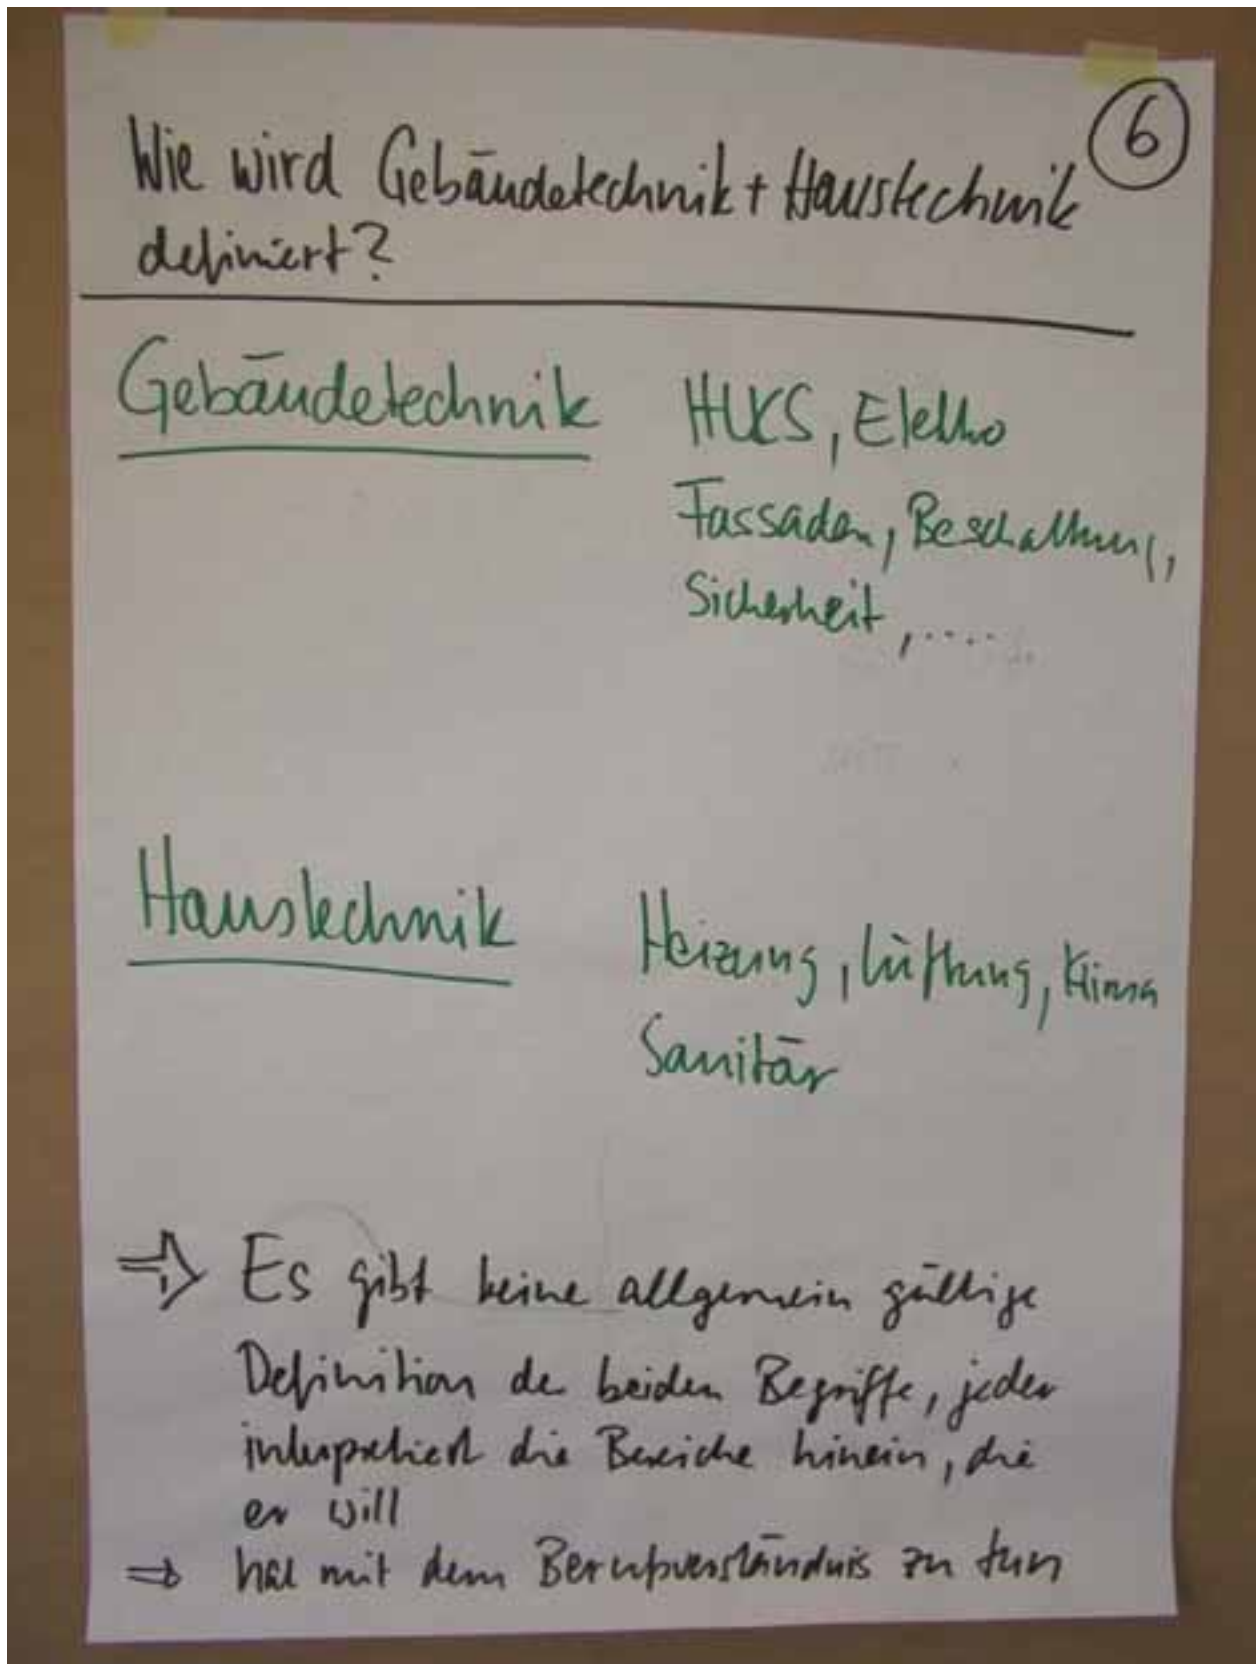 6
Wie wird Gebäudetechnik + Haustechnik
definiert?
Gebäudetechnik
HLKS, Elektro
Fassaden, Beschattung,
Sicherheit, .....
Haustechnik
Heizung, Lüftung, Klima
Sanitär
⇒ Es gibt keine allgemein gültige
Definition der beiden Begriffe, jeder
interpretiert die Bereiche hinein, die
er will
⇒ hat mit dem Berufsverständnis zu tun